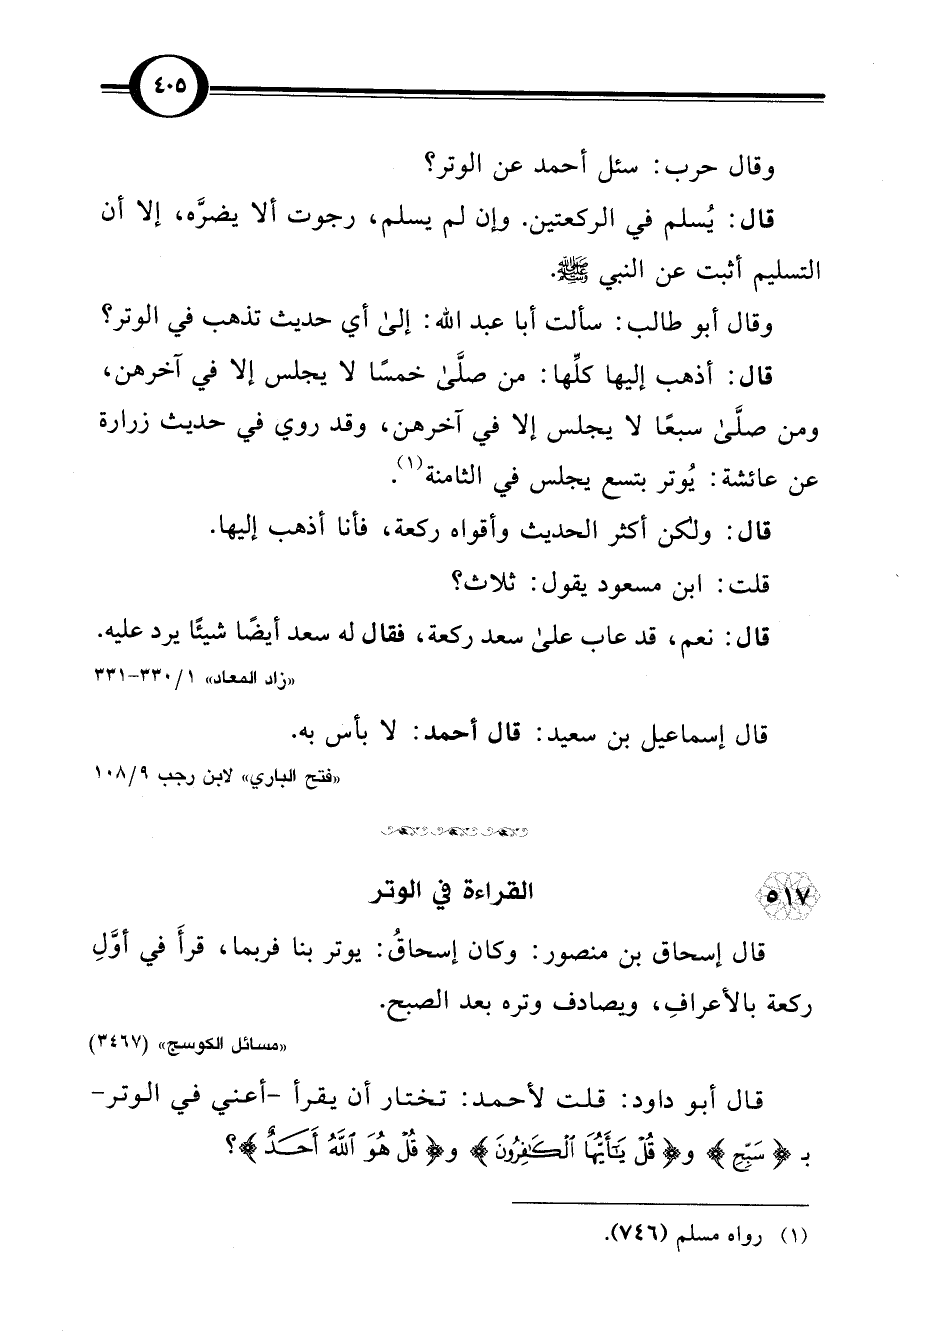 ٤٠٥
وقال حرب: سئل أحمد عن الوتر؟
قال: يُسلم في الركعتين. وإن لم يسلم، رجوت ألا يضرَّه، إلا أن
التسليم أثبت عن النبي ﷺ.
وقال أبو طالب: سألت أبا عبد الله: إلىٰ أي حديث تذهب في الوتر؟
قال: أذهب إليها كلِّها: من صلَّىٰ خمسًا لا يجلس إلا في آخرهن،
ومن صلَّىٰ سبعًا لا يجلس إلا في آخرهن، وقد روي في حديث زرارة
عن عائشة: يُوتر بتسع يجلس في الثامنة(١).
قال: ولكن أكثر الحديث وأقواه ركعة، فأنا أذهب إليها.
قلت: ابن مسعود يقول: ثلاث؟
قال: نعم، قد عاب علىٰ سعد ركعة، فقال له سعد أيضًا شيئًا يرد عليه.
«زاد المعاد» ١/ ٣٣٠-٣٣١
قال إسماعيل بن سعيد: قال أحمد: لا بأس به.
«فتح الباري» لابن رجب ٩/ ١٠٨
٥١٧ القراءة في الوتر
قال إسحاق بن منصور: وكان إسحاقُ: يوتر بنا فربما، قرأَ في أوَّلِ
ركعة بالأعرافِ، ويصادف وتره بعد الصبح.
«مسائل الكوسج» (٣٤٦٧)
قال أبو داود: قلت لأحمد: تختار أن يقرأ -أعني في الوتر-
بـ ﴿سَبِّحِ﴾ و﴿قُلْ يَٰٓأَيُّهَا ٱلْكَٰفِرُونَ﴾ و﴿قُلْ هُوَ ٱللَّهُ أَحَدٌ﴾؟
(١) رواه مسلم (٧٤٦).